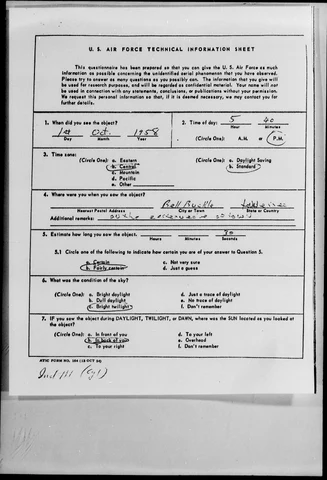 U. S. AIR FORCE TECHNICAL INFORMATION SHEET
This questionnaire has been prepared so that you can give the U. S. Air Force as much
information as possible concerning the unidentified aerial phenomenon that you have observed.
Please try to answer as many questions as you possibly can. The information that you give will
be used for research purposes, and will be regarded as confidential material. Your name will not
be used in connection with any statements, conclusions, or publications without your permission.
We request this personal information so that, if it is deemed necessary, we may contact you for
further details.
1. When did you see the object? 2. Time of day: 5 40
Hour Minutes
1st Oct. 1958
Day Month Year (Circle One): A.M. or P.M.
3. Time zone:
(Circle One): a. Eastern (Circle One): a. Daylight Saving
b. Central b. Standard
c. Mountain
d. Pacific
e. Other
4. Where were you when you saw the object?
Bell Buckle
Nearest Postal Address City or Town State or Country
Additional remarks:
5. Estimate how long you saw the object.
Hours Minutes Seconds
5.1 Circle one of the following to indicate how certain you are of your answer to Question 5.
a. Certain c. Not very sure
b. Fairly certain d. Just a guess
6. What was the condition of the sky?
(Circle One): a. Bright daylight d. Just a trace of daylight
b. Dull daylight e. No trace of daylight
c. Bright twilight f. Don't remember
7. IF you saw the object during DAYLIGHT, TWILIGHT, or DAWN, where was the SUN located as you looked at
the object?
(Circle One): a. In front of you d. To your left
b. In back of you e. Overhead
c. To your right f. Don't remember
ATIC FORM NO. 164 (13 OCT 54)